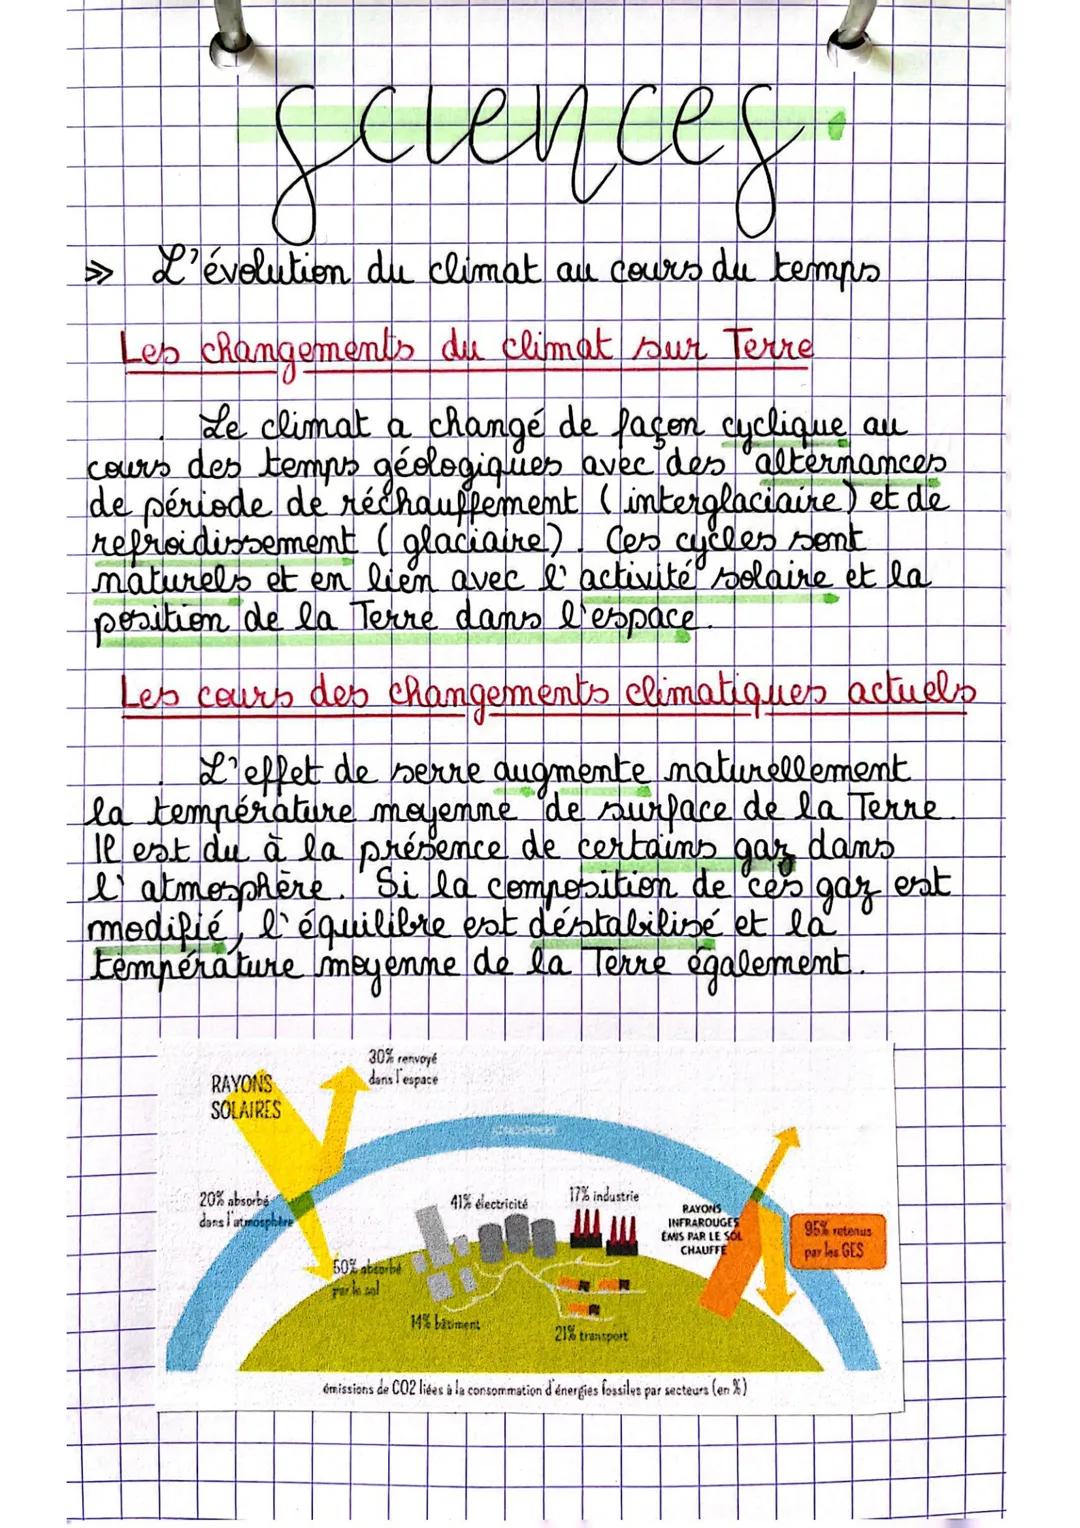 sciences.
>> L'évolution du climat au cours du temps
Les changements du climat sur Terre
. Le climat a changé de façon cyclique au
cours des temps géologiques avec des alternances
de période de réchauffement (interglaciaire) et de
refroidissement (glaciaire). Ces cycles sont
naturels et en lien avec l'activité solaire et la
position de la Terre dans l'espace.
Les cours des changements climatiques actuels
. L'effet de serre augmente naturellement
la température moyenne de surface de la Terre.
Il est du à la présence de certains gaz dans
l'atmosphère. Si la composition de ces gaz est
modifié, l'équilibre est déstabilisé et la
température moyenne de la Terre également.
30% renvoyé
dans l'espace
RAYONS
SOLAIRES
ATMOSPHERE
20% absorbé
dans l'atmosphère
41% électricité
17% industrie
RAYONS
INFRAROUGES
ÉMIS PAR LE SOL
CHAUFFÉ
95% retenus
par les GES
50% absorbé
par le sol
14% bâtiment
21% transport
émissions de CO2 liées à la consommation d'énergies fossiles par secteurs (en %)